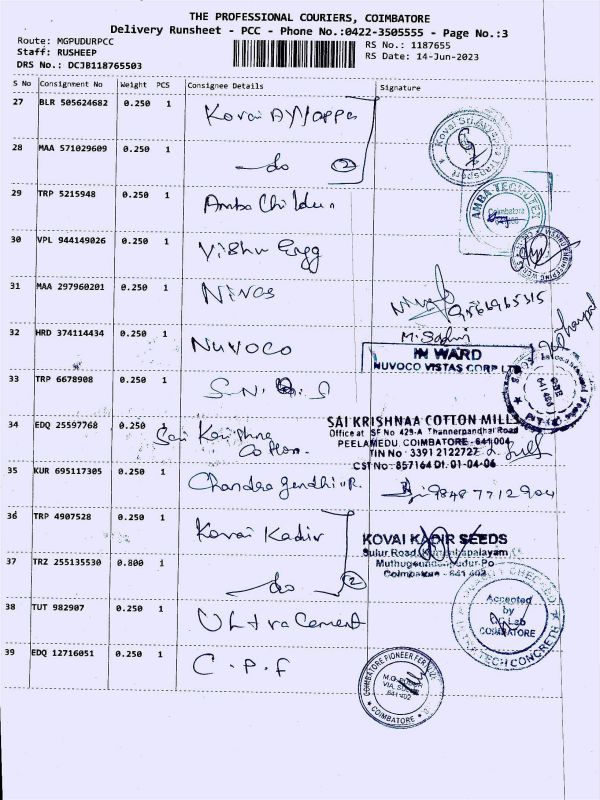 THE PROFESSIONAL COURIERS, COIMBATORE
Delivery Runsheet - PCC - Phone No.:0422-3505555 - Page No.:3
Route: MGPUDURPCC
Staff: RUSHEEP
DRS No.: DCJB118765503
RS No.: 1187655
RS Date: 14-Jun-2023
S No Consignment No Weight PCS Consignee Details Signature
27 BLR 505624682 0.250 1 Kovai Ayyappa
Kovai Sri Ayyappa Transport
28 MAA 571029609 0.250 1 - do 2
29 TRP 5215948 0.250 1 Amba Childun
AMBA TEGLUTEX
Coimbatore
30 VPL 944149026 0.250 1 Vishu Engg
31 MAA 297960201 0.250 1 Nivas
Nivas
9566965315
32 HRD 374114434 0.250 1 Nuvoco
IN WARD
NUVOCO VISTAS CORP LTD
33 TRP 6678908 0.250 1 S.N.S
34 EDQ 25597768 0.250 1 Sai Krishna
Cotton.
SAI KRISHNAA COTTON MILLS
Office at SF No 429-A Thannerpandhal Road
PEELAMEDU, COIMBATORE - 641 004
TIN No 3391 2122722
CST No : 857164 Dt. 01-04-06
35 KUR 695117305 0.250 1 Chandra Gandhi
9848771290
36 TRP 4907528 0.250 1 Kovai Kadir
KOVAI KADIR SEEDS
Sulur Road, Kumbapalayam
Muthugoundenpudur-Po
Coimbatore - 641 402
37 TRZ 255135530 0.800 1 - do 2
38 TUT 982907 0.250 1 Ultra Cement
QUALITY CHECKED
Accepted
by
QC Lab
COIMBATORE
ULTRATECH CONCRETE
39 EDQ 12716051 0.250 1 C.P.F
COIMBATORE PIONEER FERTILIZ
VIA, SULUR
641 402
COIMBATORE